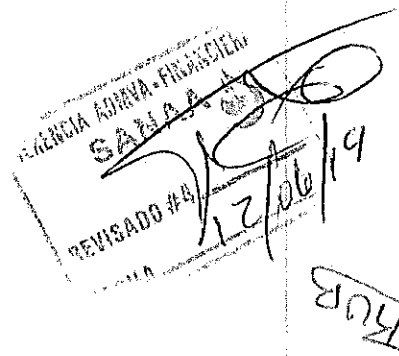 GERENCIA ADMVA-FINANCIERA
SANAA
REVISADO #4
12/06/19
RUB